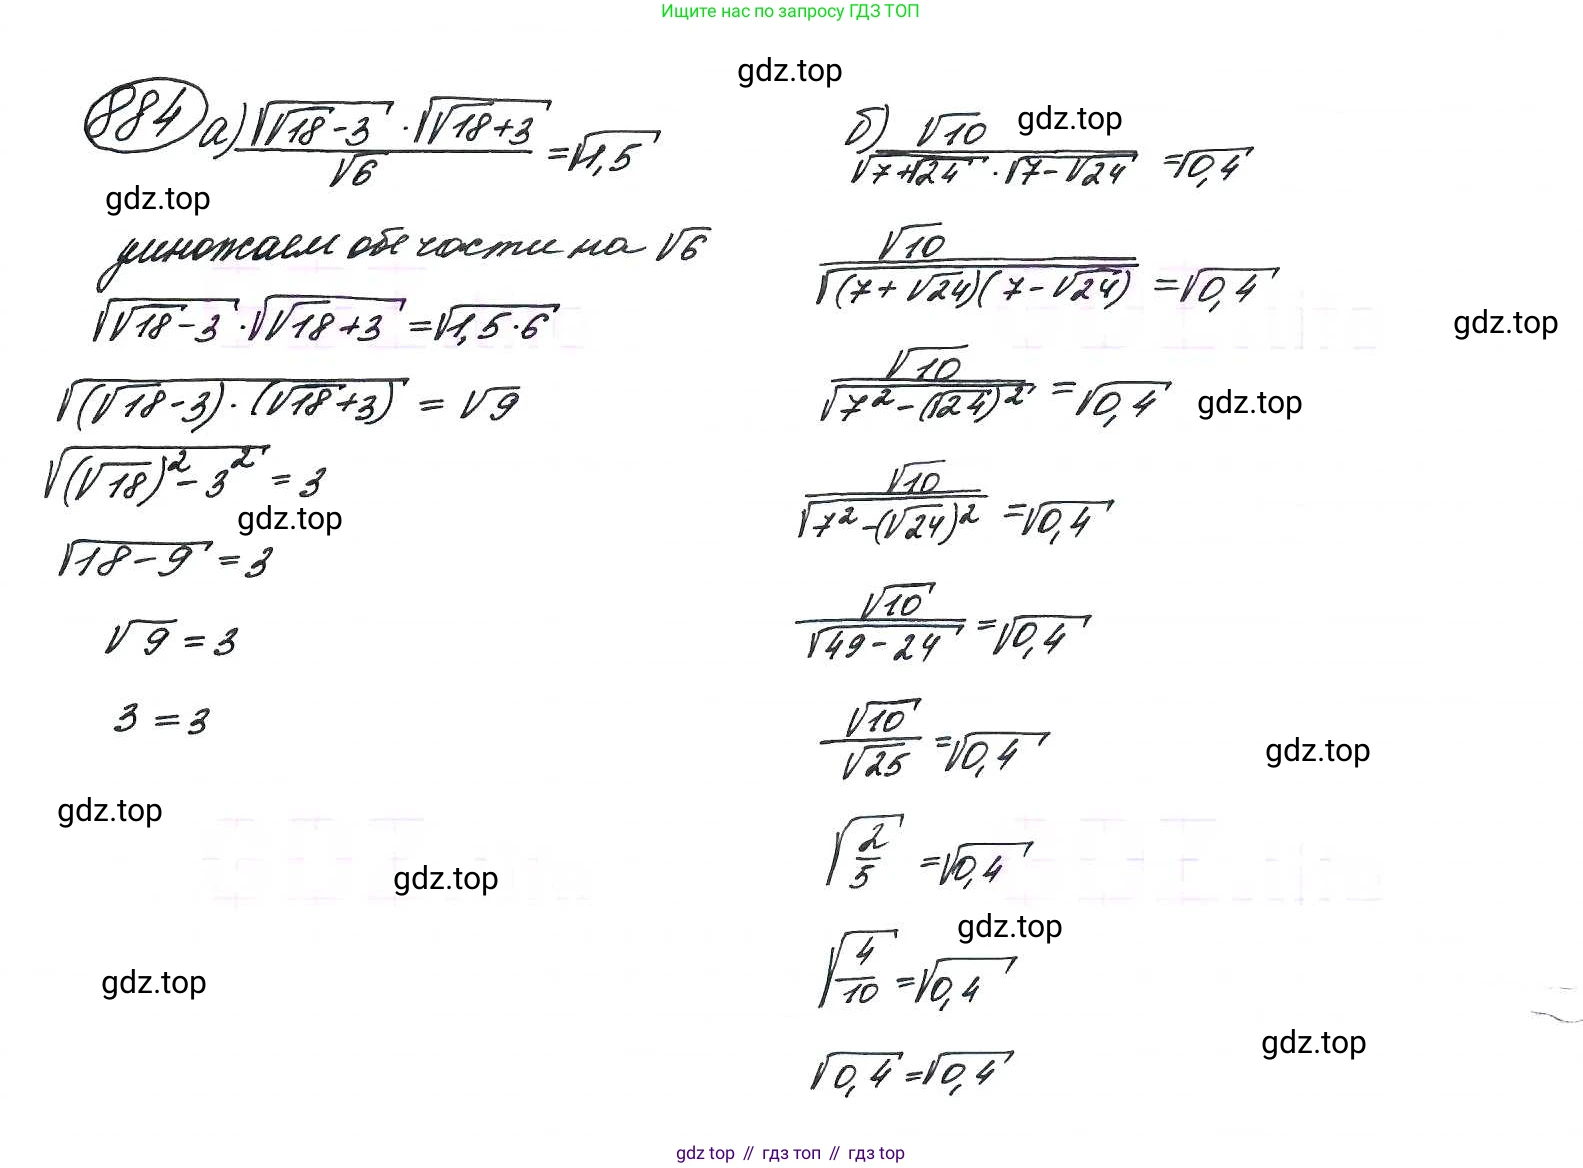 Ищите нас по запросу ГДЗ ТОП
gdz.top
884 а) (√(√18-3) · √(√18+3))/√6 = √1,5
gdz.top
умножаем обе части на √6
√(√18-3) · √(√18+3) = √(1,5·6)
√((√18-3)·(√18+3)) = √9
√((√18)²-3²) = 3
gdz.top
√(18-9) = 3
√9 = 3
3 = 3
gdz.top
gdz.top
gdz.top
б) √10/(√(7+√24) · √(7-√24)) = √0,4
gdz.top
√10/√((7+√24)(7-√24)) = √0,4
gdz.top
√10/√(7²-(√24)²) = √0,4
gdz.top
√10/√(7²-(√24)²) = √0,4
√10/√(49-24) = √0,4
√10/√25 = √0,4
gdz.top
√(2/5) = √0,4
gdz.top
√(4/10) = √0,4
gdz.top
√0,4 = √0,4
gdz top // гдз топ // gdz top